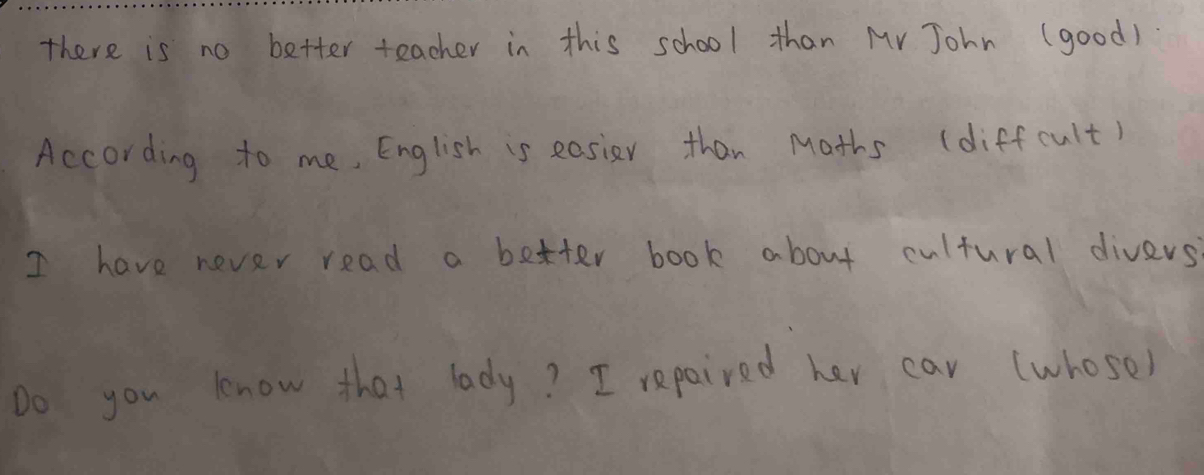 there is no better teacher in this school than Mr John (good)
According to me, English is easier than Maths (diffcult)
I have never read a better book about cultural divers
Do you know that lady ? I repaired her car (whose)